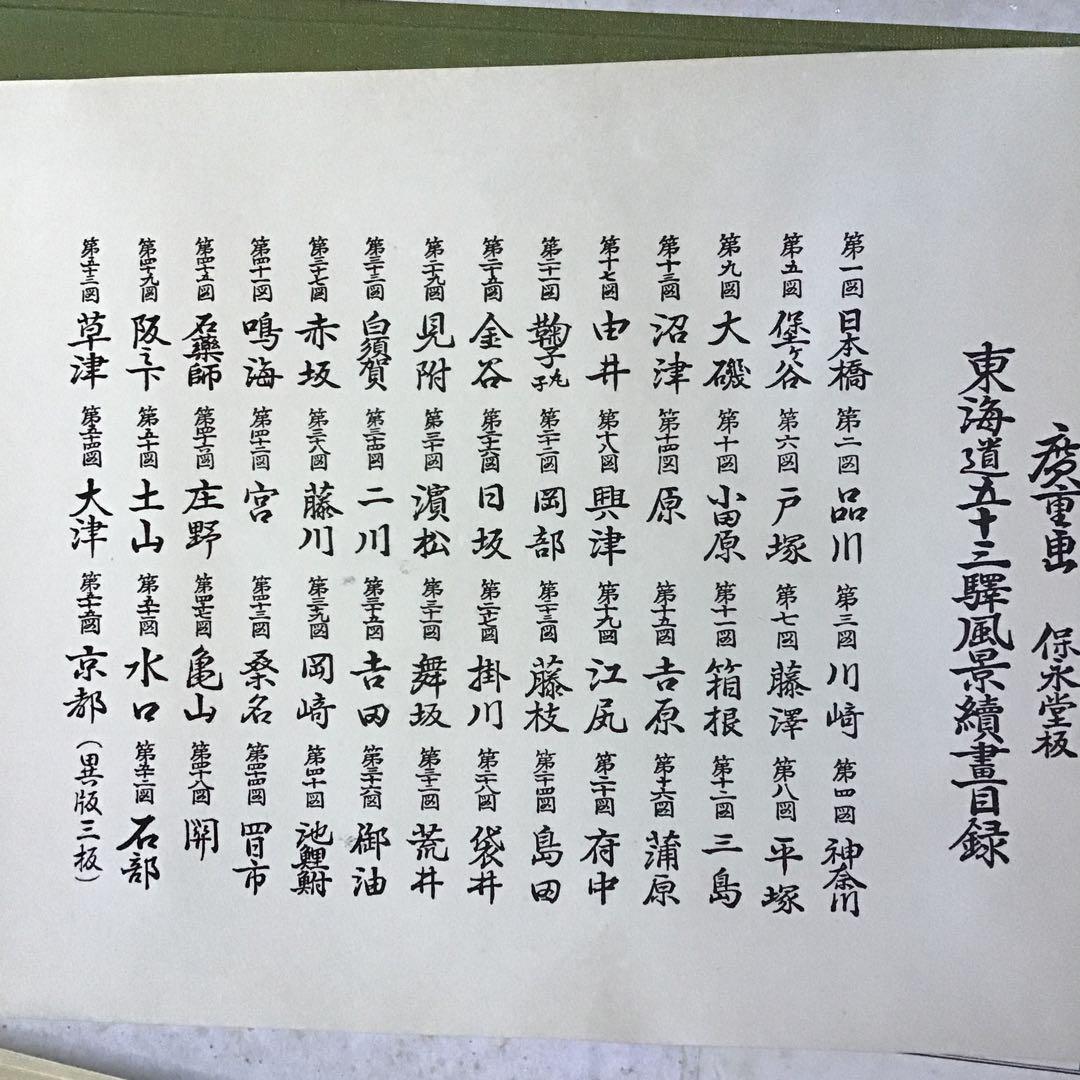 廣重画 保永堂板
東海道五十三驛風景續畫目録
第一図 日本橋 第二図 品川 第三図 川崎 第四図 神奈川
第五図 堡ヶ谷 第六図 戸塚 第七図 藤澤 第八図 平塚
第九図 大磯 第十図 小田原 第十一図 箱根 第十二図 三島
第十三図 沼津 第十四図 原 第十五図 吉原 第十六図 蒲原
第十七図 由井 第十八図 興津 第十九図 江尻 第二十図 府中
第二十一図 鞠子 丸子 第二十二図 岡部 第二十三図 藤枝 第二十四図 島田
第二十五図 金谷 第二十六図 日坂 第二十七図 掛川 第二十八図 袋井
第二十九図 見附 第三十図 濱松 第三十一図 舞坂 第三十二図 荒井
第三十三図 白須賀 第三十四図 二川 第三十五図 吉田 第三十六図 御油
第三十七図 赤坂 第三十八図 藤川 第三十九図 岡崎 第四十図 池鯉鮒
第四十一図 鳴海 第四十二図 宮 第四十三図 桑名 第四十四図 四日市
第四十五図 石藥師 第四十六図 庄野 第四十七図 亀山 第四十八図 関
第四十九図 阪之下 第五十図 土山 第五十一図 水口 第五十二図 石部
第五十三図 草津 第五十四図 大津 第五十五図 京都 (異版三板)